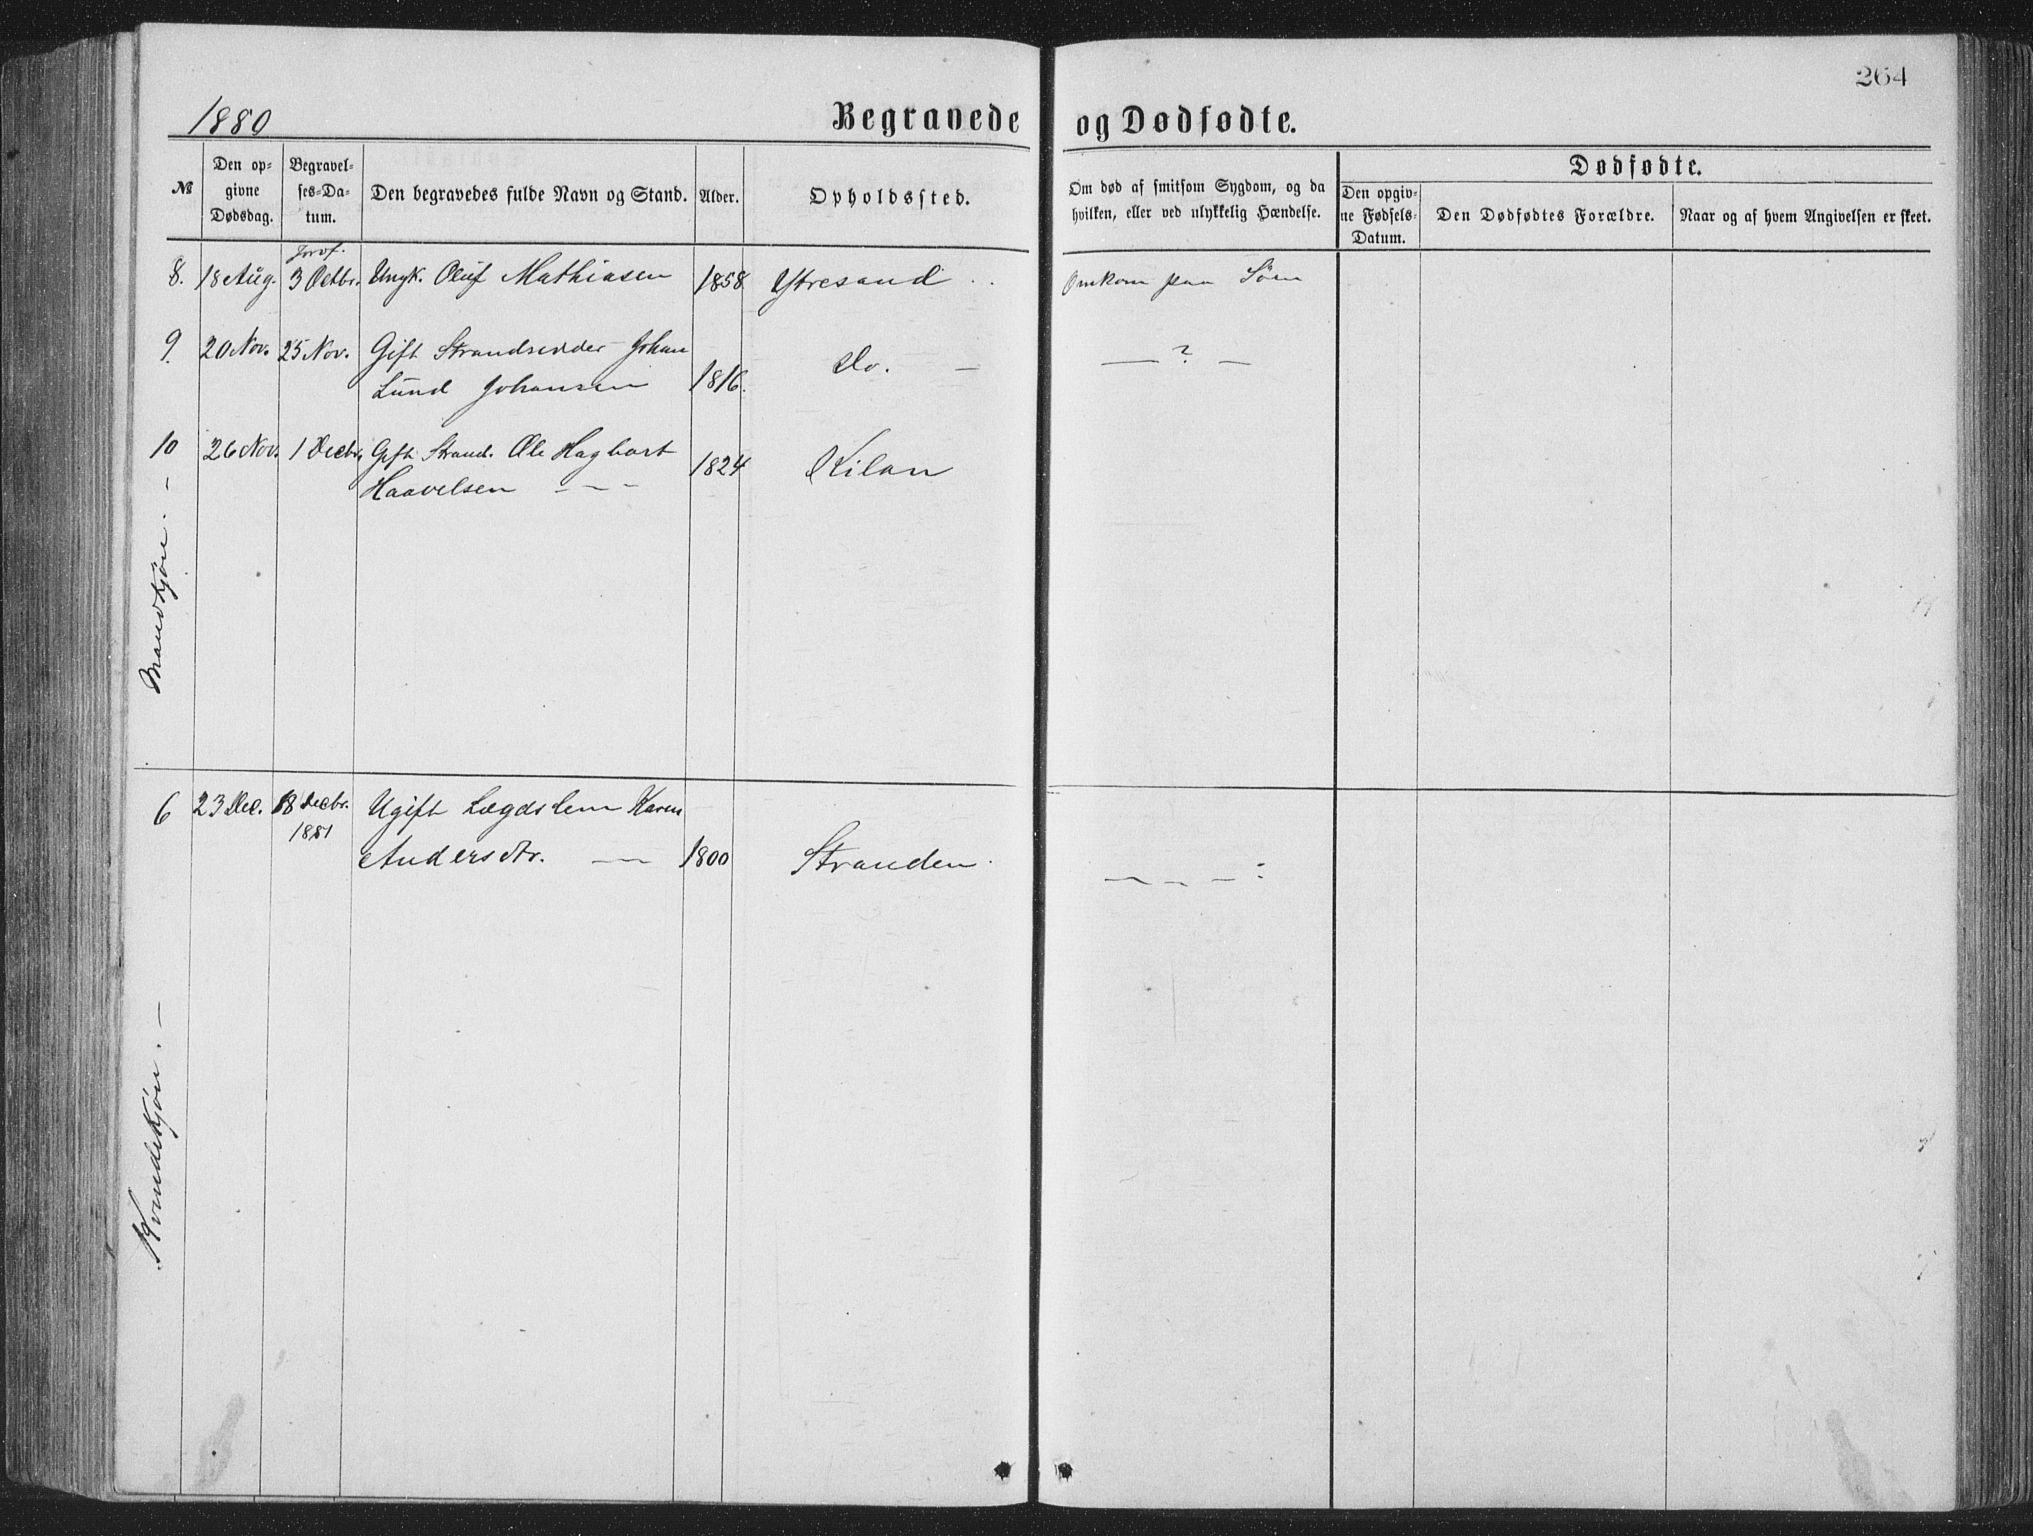 264
1880 Begravede og Dødfødte.
№ Den op- givne Dødsdag. Begravel- ses-Da- tum. Den begravedes fulde Navn og Stand. Alder. Opholdssted. Om død af smitsom Sygdom, og da hvilken, eller ved ulykkelig Hændelse. Dødfødte. Den opgiv- ne Fødsels- Datum. Den Dødfødtes Forældre. Naar og af hvem Angivelsen er skeet.
Jordf.
8. 18 Aug. 3 Octbr. Ungk. Oluf Mathiasen 1858 Ytresand . . Omkom paa Søen
9. 20 Nov. 25 Nov. Gift Strandsidder Johan
Lund Johansen 1816. Do. — — ? —
10 26 Nov. 1 Decbr. Gift Strand. Ole Hagbart
Haavelsen - - - 1824 Kilan
Mandkjøn. -
6 23 Dec. 18 Decbr. Ugift Lægdslem Karen
1881
Andersdtr. — 1800 Stranden. — - - :
Kvindekjøn. -